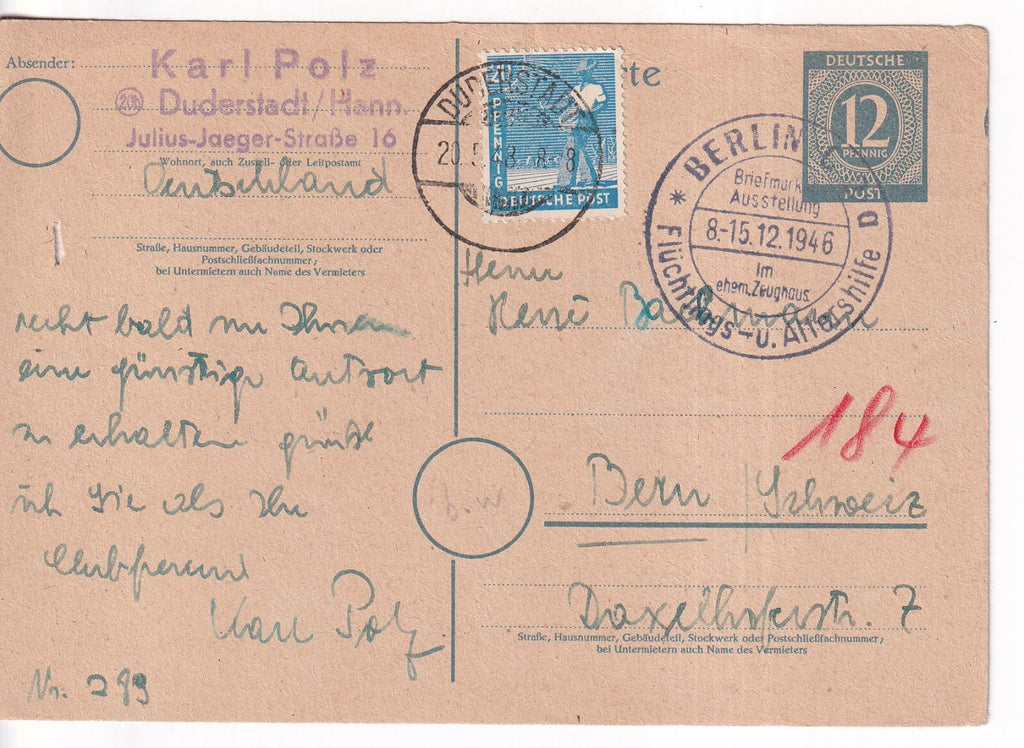 Absender:
Karl Polz
(20b) Duderstadt/Hann.
Julius-Jaeger-Straße 16
Wohnort, auch Zustell- oder Leitpostamt
Deutschland
Straße, Hausnummer, Gebäudeteil, Stockwerk oder
Postschließfachnummer;
bei Untermietern auch Name des Vermieters
recht bald von Ihnen
eine günstige Antwort
zu erhalten grüßt
ich Sie als Ihr
Clubfreund
Karl Polz.
No. 299
rte
DUDERSTADT
20.5 8-8
PFENNIG
DEUTSCHE POST
DEUTSCHE
12
PFENNIG
POST
BERLIN
Briefmark
Ausstellung
8.-15.12.1946
Im
ehem. Zeughaus
Flüchtlings- u. Altershilfe
Herrn
René Bachmann
184
Bern / Schweiz
b.w
7
Straße, Hausnummer, Gebäudeteil, Stockwerk oder Postschließfachnummer;
bei Untermietern auch Name des Vermieters